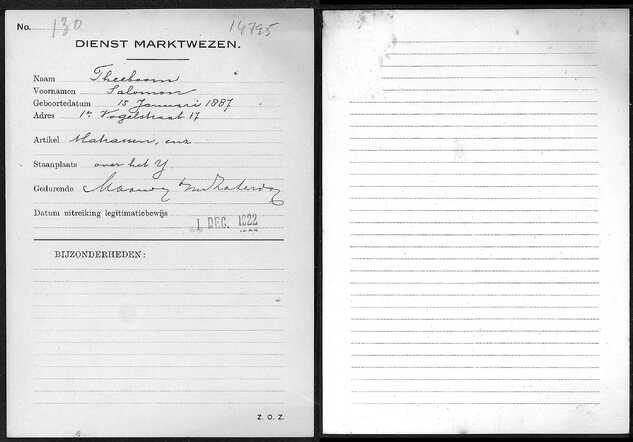 No. 130 14795
DIENST MARKTWEZEN.
Naam Theeboom
Voornamen Salomon
Geboortedatum 15 Januari 1887
Adres 1e Vogelstraat 17
Artikel Matrassen, enz
Staanplaats over het Y
Gedurende Maandag t/m Zaterdag
Datum uitreiking legitimatiebewijs 1 DEC. 1922
BIJZONDERHEDEN:
Z. O. Z.